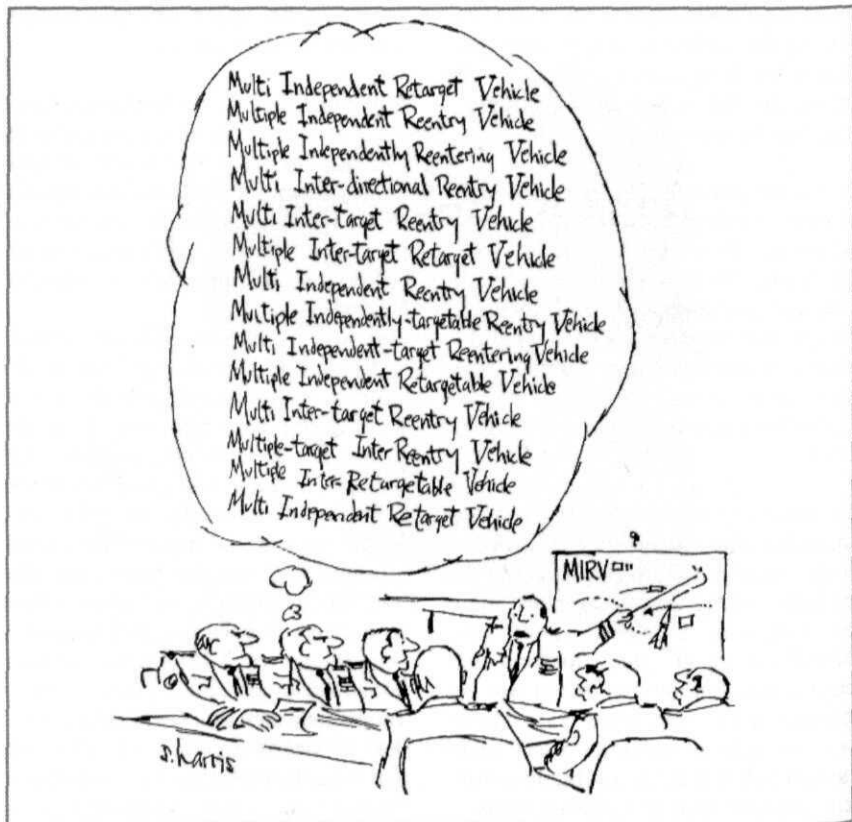 Multi Independent Retarget Vehicle
Multiple Independent Reentry Vehicle
Multiple Independently Reentering Vehicle
Multi Inter-directional Reentry Vehicle
Multi Inter-target Reentry Vehicle
Multiple Inter-target Retarget Vehicle
Multi Independent Reentry Vehicle
Multiple Independently-targetable Reentry Vehicle
Multi Independent-target Reentering Vehicle
Multiple Independent Retargetable Vehicle
Multi Inter-target Reentry Vehicle
Multiple-target Inter Reentry Vehicle
Multiple Inter-Retargetable Vehicle
Multi Independent Retarget Vehicle
MIRV
S. harris